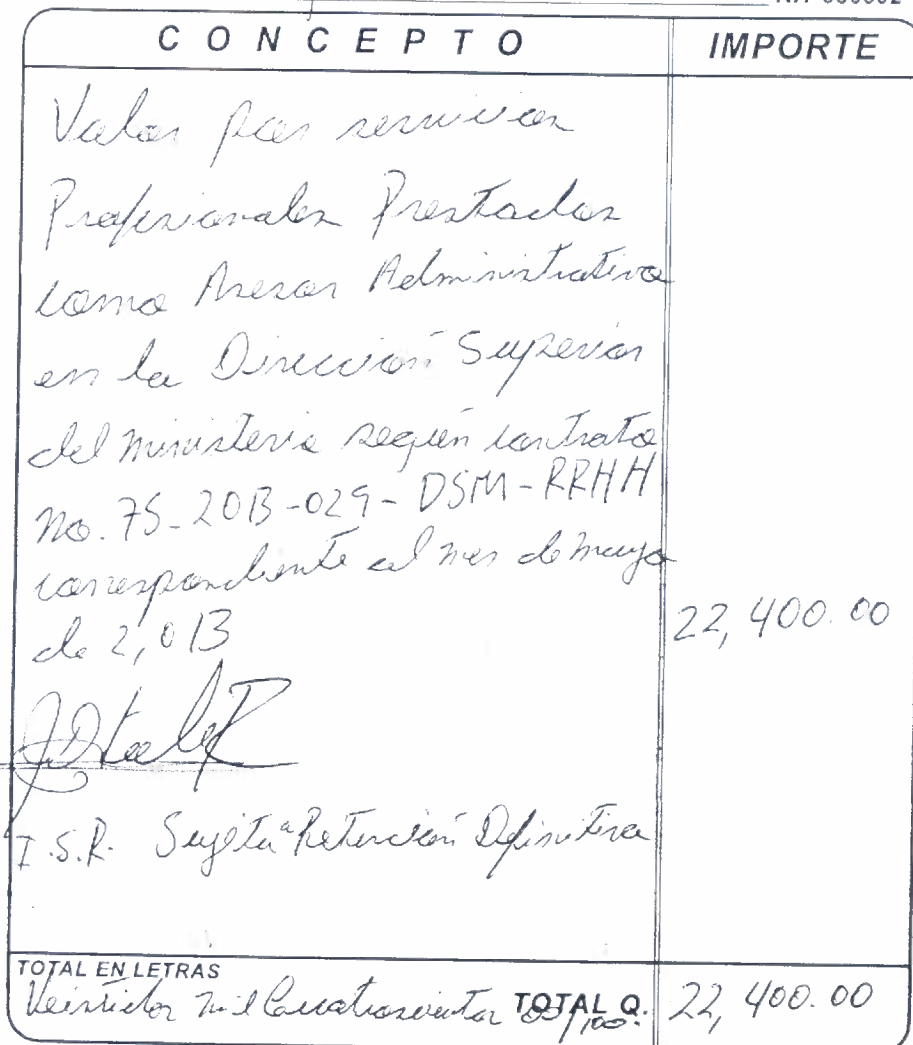 CONCEPTO IMPORTE
Valor por servicios
Profesionales Prestados
como Asesor Administrativo
en la Dirección Superior
del Ministerio según contrato
No. 75-2013-029-DSM-RRHH
correspondiente al mes de mayo
de 2,013 22,400.00
I.S.R. Sujeto a Retención Definitiva
TOTAL EN LETRAS
Veintidos mil Cuatroscientos 00/100. TOTAL Q. 22,400.00